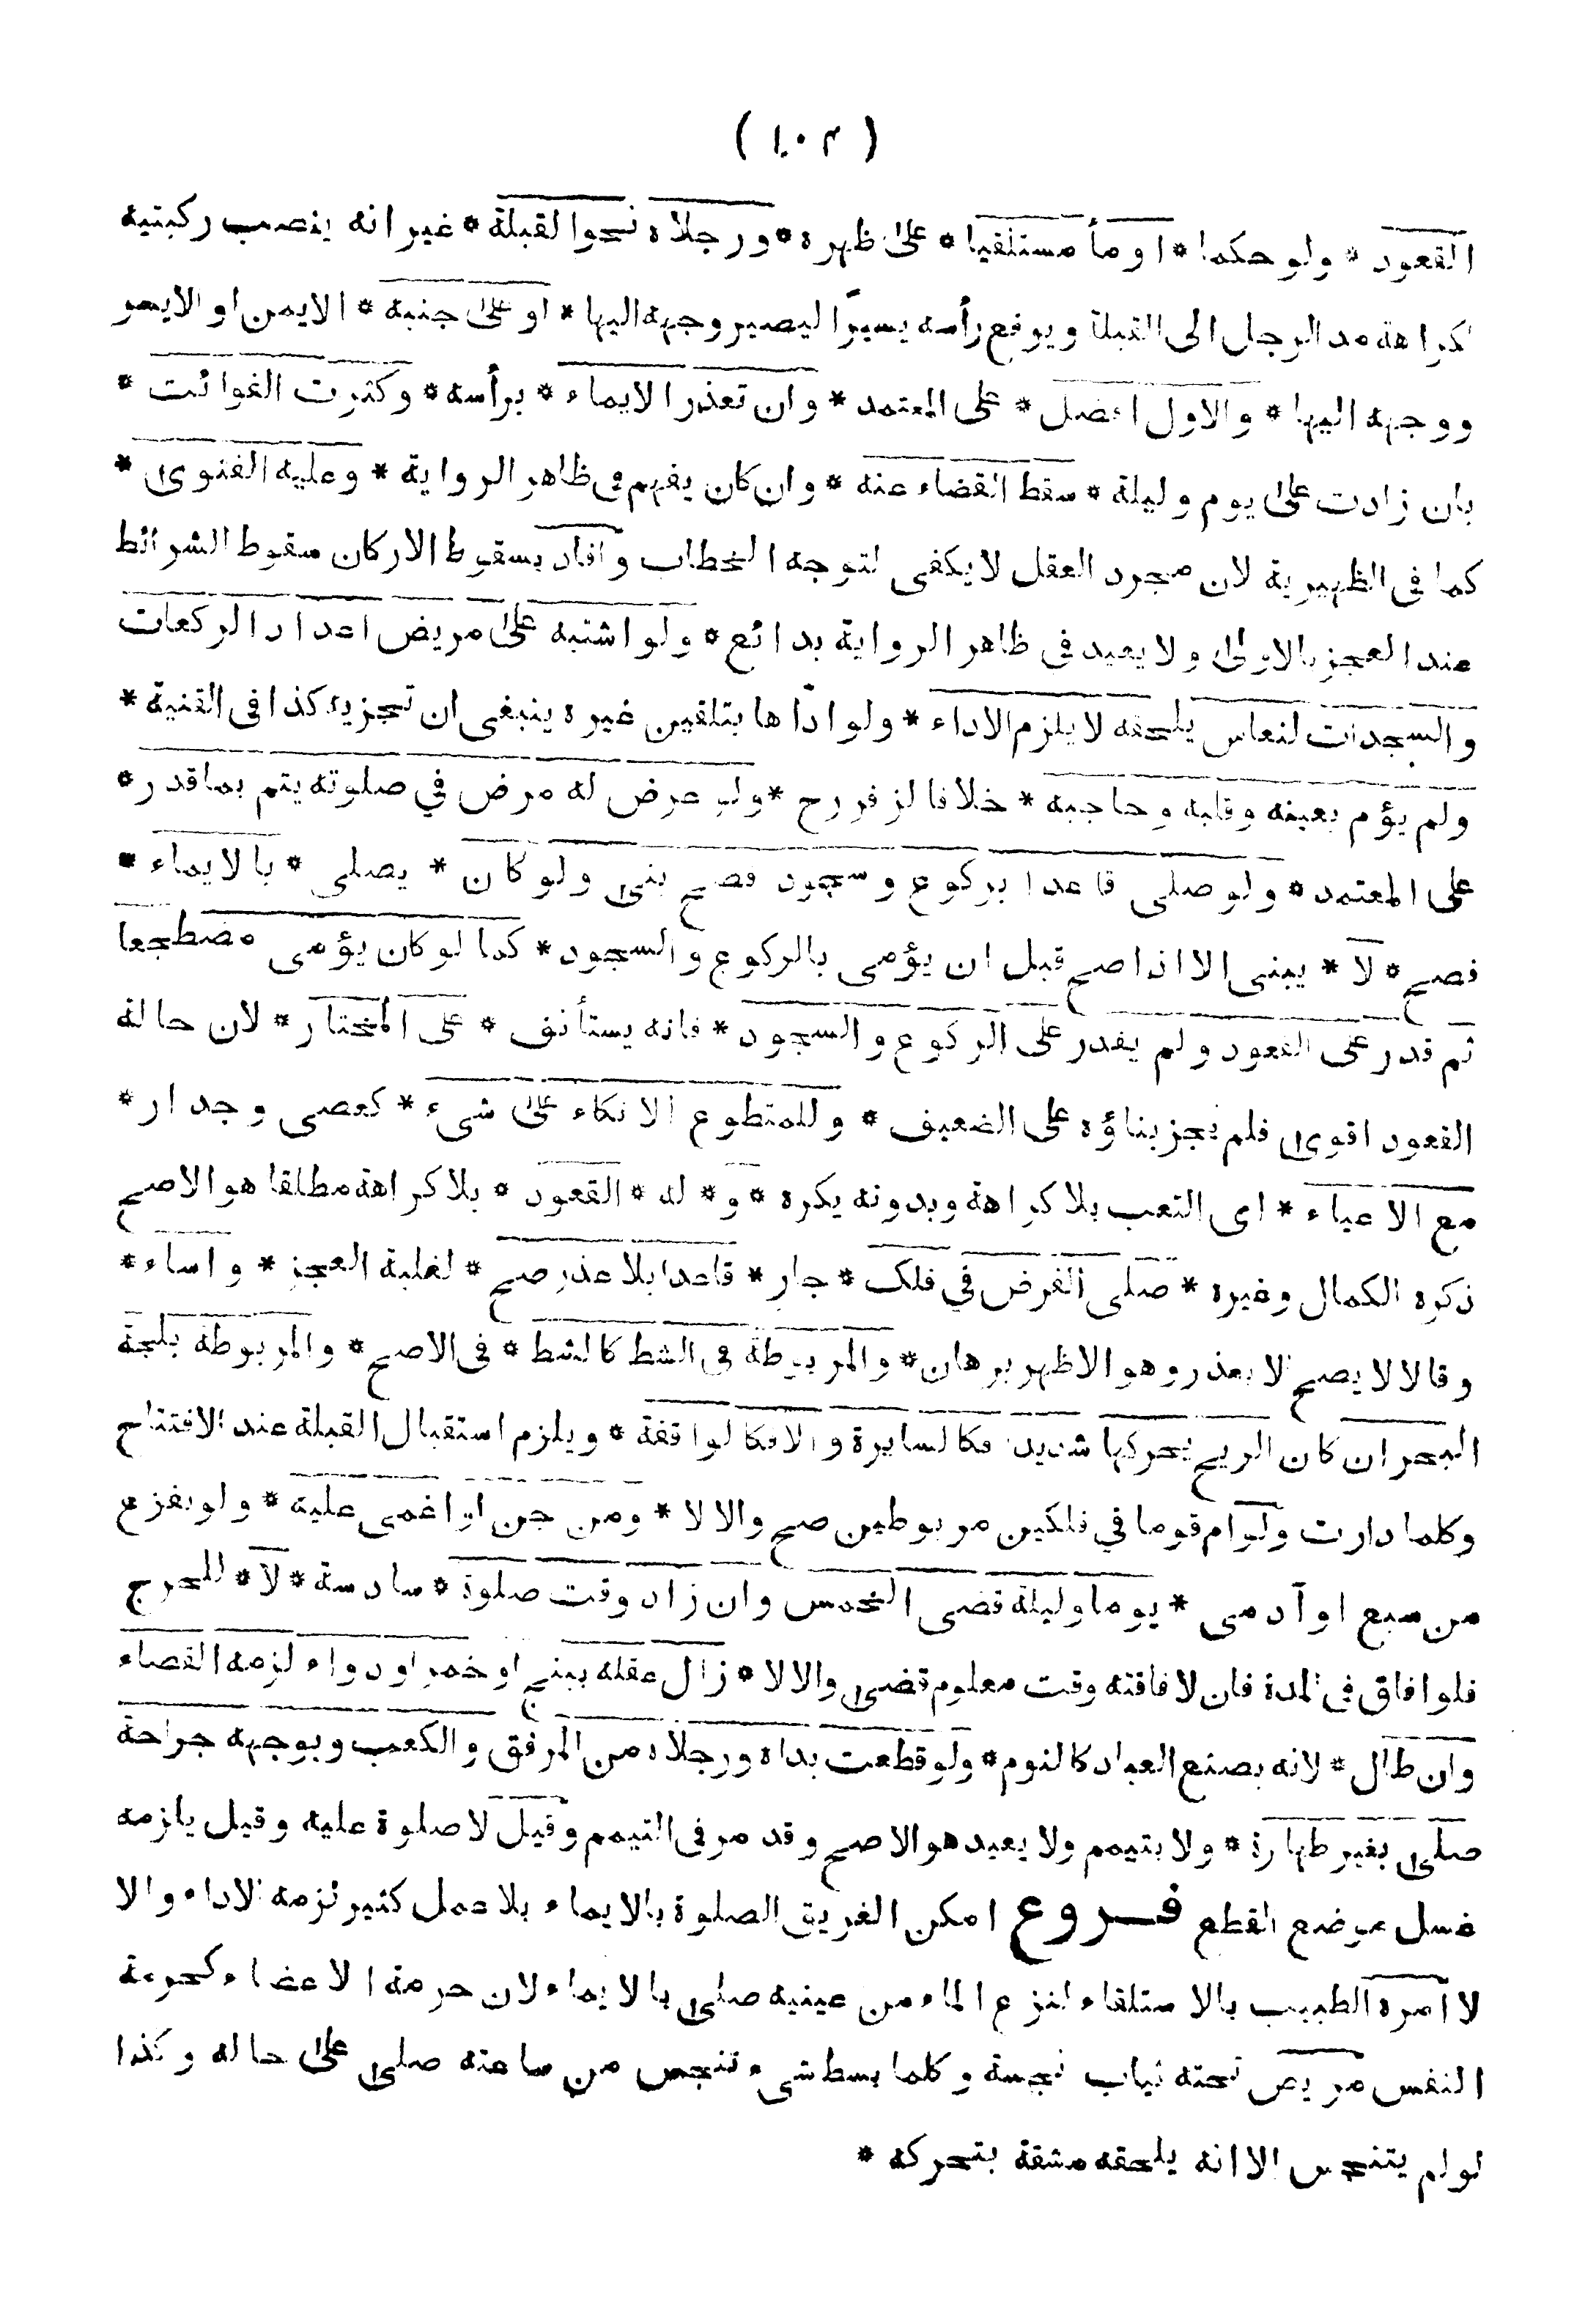 ( ١٠٣ )
القعود * ولو حكما * اومأ مستلقيا * على ظهره * ورجلاه نحوالقبلة * غير انه ينصب ركبتيه
لكراهة مد الرجل الى القبلة ويرفع رأسه يسيرًا ليصير وجهه اليها * او على جنبه * الايمن او الايسر
ووجهه اليها * والاول افضل * على المعتمد * وان تعذر الايماء * برأسه * وكثرت الفوائت *
بان زادت على يوم وليلة * سقط القضاء عنه * وان كان يفهم فى ظاهر الرواية * وعليه الفتوى *
كما فى الظهيرية لان مجرد العقل لايكفى لتوجه الخطاب وافاد بسقوط الاركان سقوط الشرائط
عند العجز بالاولى ولا يعيد فى ظاهر الرواية بدائع * ولو اشتبه على مريض اعداد الركعات
والسجدات لنعاس يلحقه لايلزم الاداء * ولو ادّاها بتلقين غيره ينبغى ان تجزيه كذا فى القنية *
ولم يؤم بعينه وقلبه وحاجبه * خلافا لزفررح * ولو عرض له مرض في صلوته يتم بماقدر *
على المعتمد * ولو صلى قاعدا بركوع وسجود فصح بنى ولو كان * يصلى * بالايماء *
فصح * لا * يبنى الا اذا صح قبل ان يؤمى بالركوع والسجود * كما لو كان يؤمى مضطجعا
ثم قدر على القعود ولم يقدر على الركوع والسجود * فانه يستأنف * على المختار * لان حالة
القعود اقوى فلم يجز بناؤه على الضعيف * وللمتطوع الاتكاء على شىء * كعصى وجدار *
مع الاعياء * اى التعب بلاكراهة وبدونه يكره * و * له * القعود * بلاكراهة مطلقا هوالاصح
ذكره الكمال وغيره * صلى الفرض في فلك * جار * قاعدا بلا عذر صح * لغلبة العجز * واساء *
وقالا لا يصح الا بعذر وهو الاظهر برهان * والمربوطة فى الشط كالشط * فى الاصح * والمربوطة بلجة
البحر ان كان الريح يحركها شديدا فكالسايرة والا فكالواقفة * ويلزم استقبال القبلة عند الافتتاح
وكلما دارت ولوام قوما في فلكين مربوطين صح والا لا * ومن جن او اغمى عليه * ولو بفزع
من سبع او آدمى * يوما وليلة قضى الخمس وان زاد وقت صلوة * سادسة * لا * للحرج
فلو افاق فى المدة فان لافاقته وقت معلوم قضى والا لا * زال عقله ببنج او خمر او دواء لزمه القضاء
وان طال * لانه بصنع العباد كالنوم * ولو قطعت يداه ورجلاه من المرفق والكعب وبوجهه جراحة
صلى بغير طهارة * ولا بتيمم ولا يعيد هوالاصح وقد مر فى التيمم وقيل لا صلوة عليه وقيل يلزمه
غسل موضع القطع فــروع امكن الغريق الصلوة بالايماء بلا عمل كثير لزمه الاداء والا
لا امره الطبيب بالاستلقاء لنزع الماء من عينيه صلى بالايماء لان حرمة الاعضاء كحرمة
النفس مريض تحته ثياب نجسة وكلما بسط شىء تنجس من ساعته صلى على حاله وكذا
لو لم يتنجس الا انه يلحقه مشقة بتحركه *